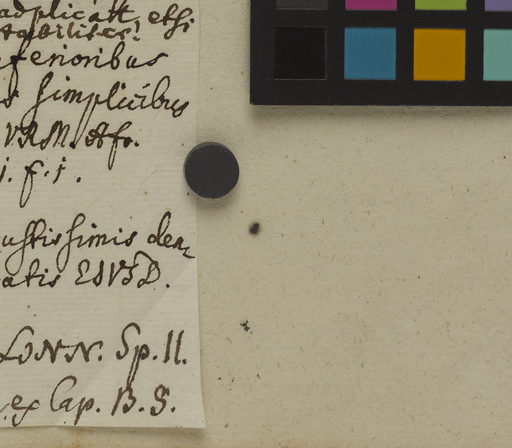 adplicatt, etsi
stabilites!
ferioribus
s simplicibus
VRM. Afr.
j. f. i.
ustissimis den-
atis EJVSD.
LONN. Sp. II.
ex Cap. B. S.